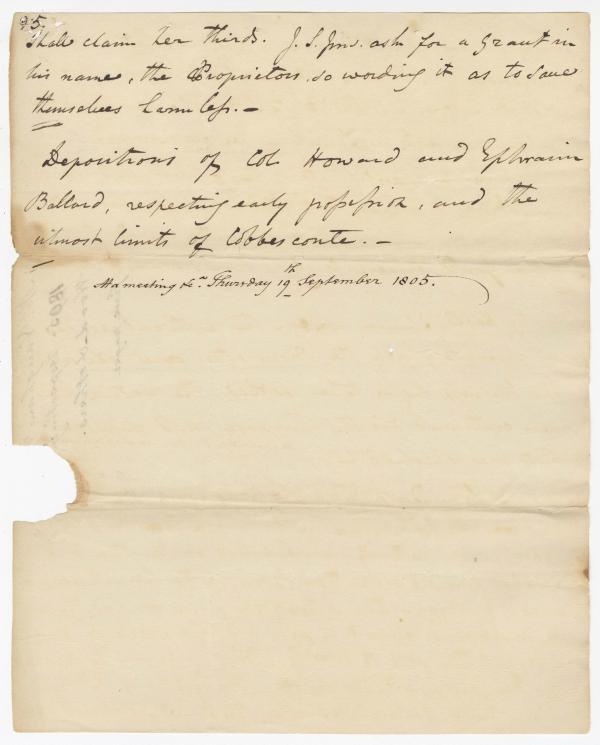 25.
Shall claim her thirds. J. S. Jno. ask for a Grant in
his name, the Proprietors so wording it as to save
themselves harmless. —
Depositions of Col Howard and Ephraim
Ballard, respecting early possession, and the
utmost limits of Cobbesconte. —
At a meeting &c. Thursday 19th September 1805.
1805.